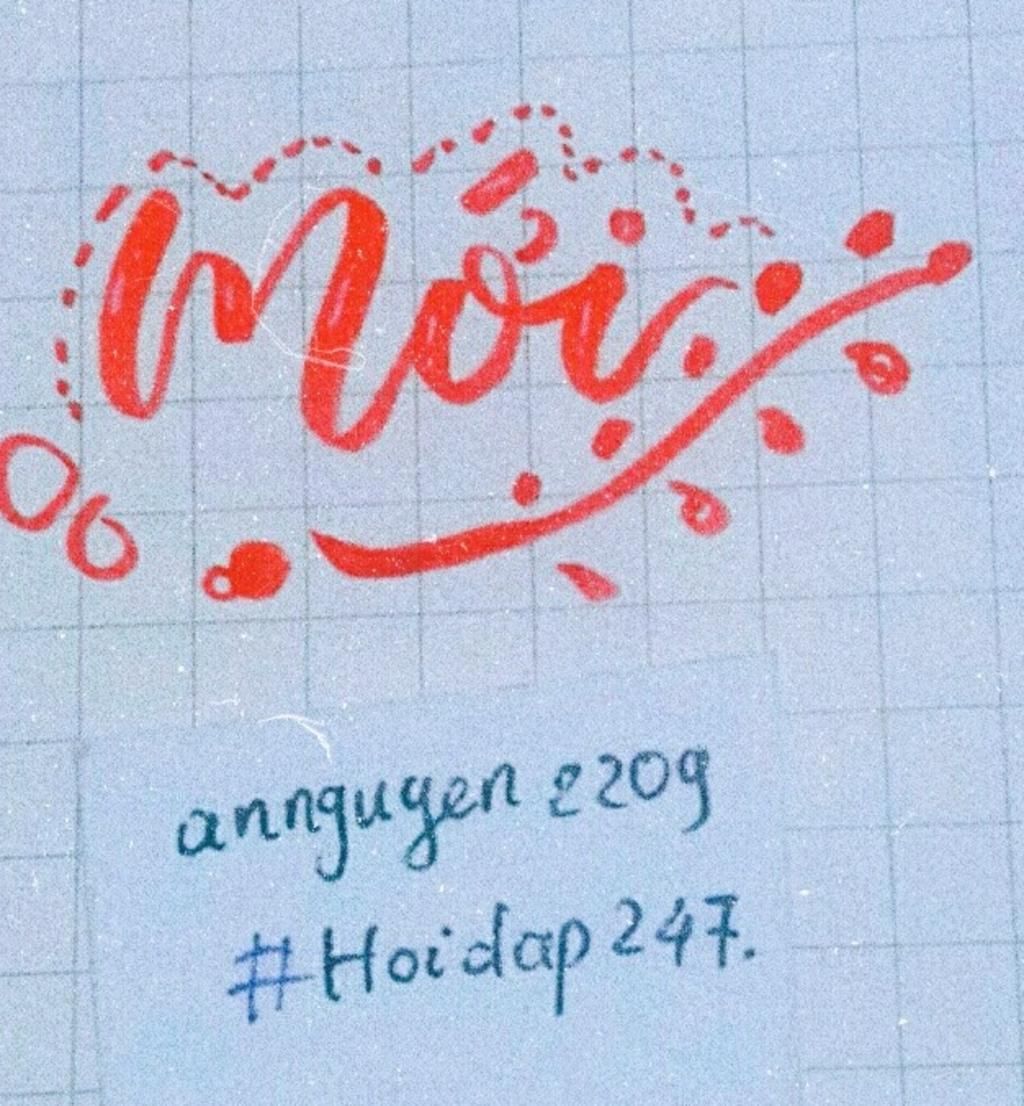 Mới
annguyen2209
#Hoidap247.